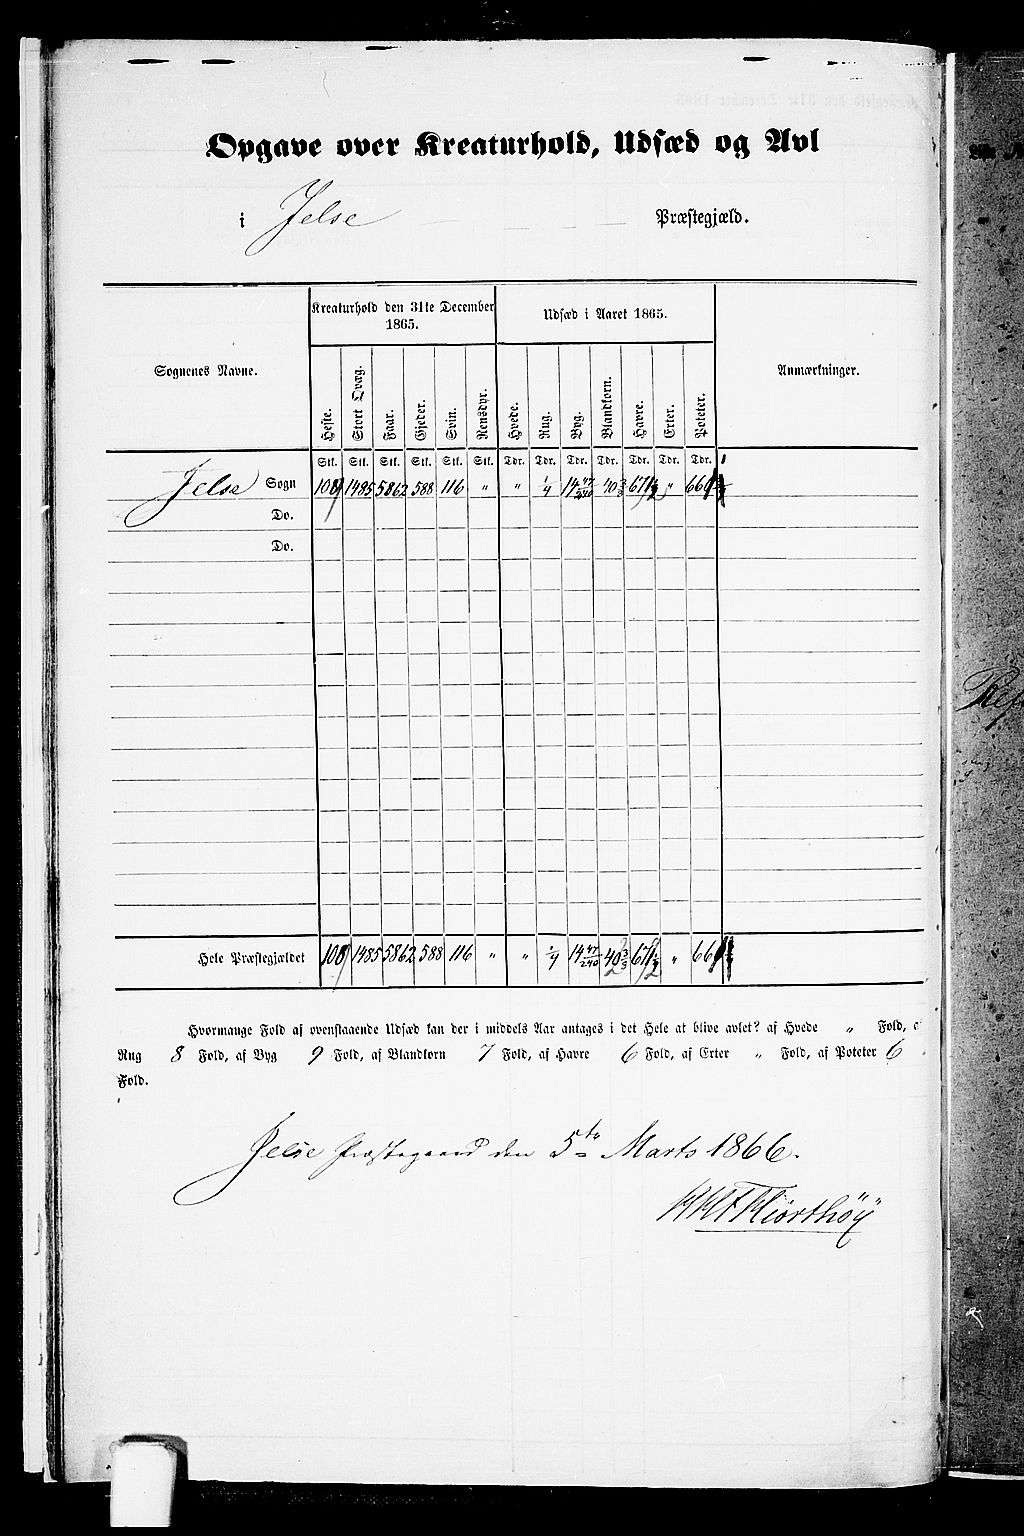 Opgave over Kreaturhold, Udsæd og Avl
i Jelse Præstegjæld.
Sognenes Navne.
Kreaturhold den 31te December 1865.
Udsæd i Aaret 1865.
Anmærkninger.
Heste. Stort Qvæg. Faar. Gjeder. Svin. Rensdyr. Hvede. Rug. Byg. Blandkorn. Havre. Erter. Poteter.
Stk. Stk. Stk. Stk. Stk. Stk. Tdr. Tdr. Tdr. Tdr. Tdr. Tdr. Tdr.
Jelse Sogn 1485 5862 588 116 " " 1/4 14 47/240 "
Do.
Do.
Hele Præstegjældet 1485 5862 588 116 " " 1/4 14 47/240 "
Hvormange Fold af ovenstaaende Udsæd kan der i middels Aar antages i det Hele at blive avlet? af Hvede " Fold, a
Rug 8 Fold, af Byg 9 Fold, af Blandkorn 7 Fold, af Havre 6 Fold, af Erter " Fold, af Poteter 6
Fold.
Jelse Præstegaard den 5te Marts 1866.